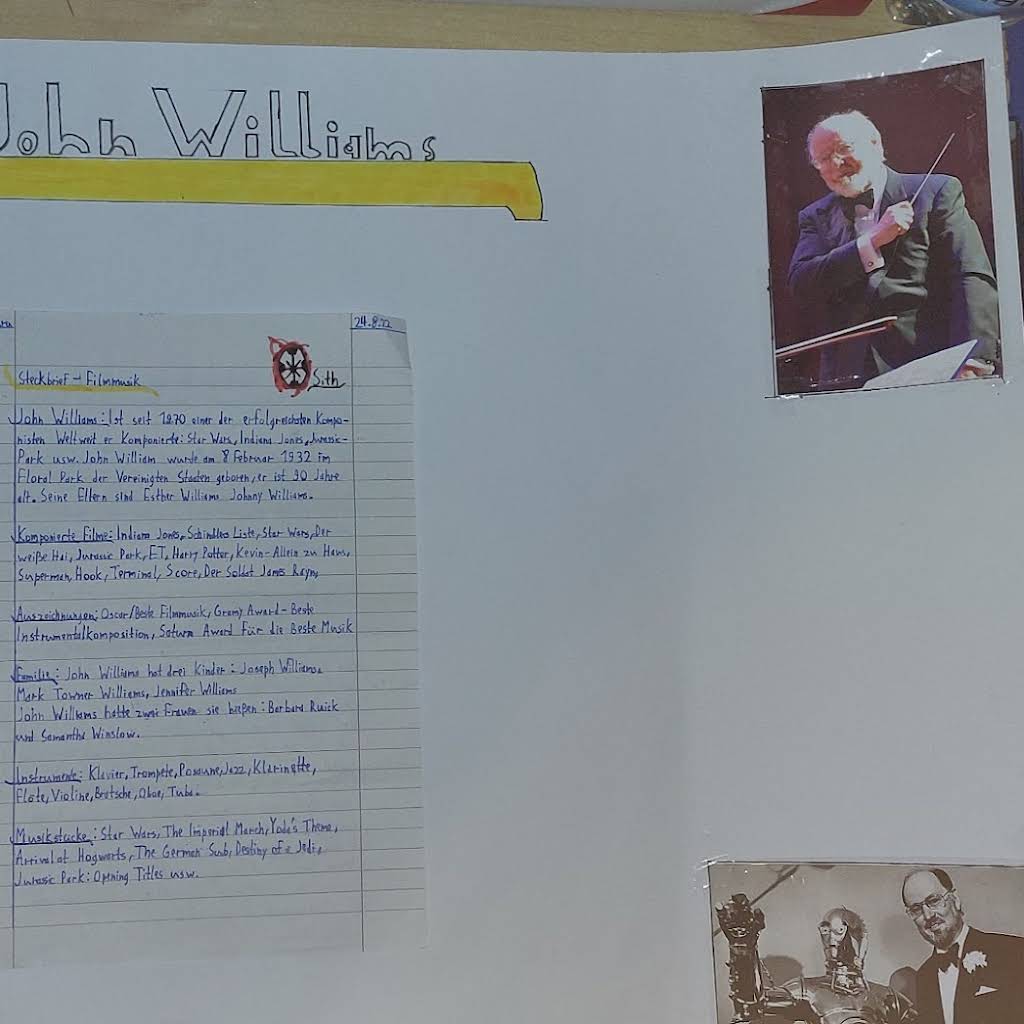 John Williams
24.8.22
Steckbrief - Filmmusik
Sith
John Williams: Ist seit 1970 einer der erfolgreichsten Kompo-
nisten Weltweit er Komponierte: Star Wars, Indiana Jones, Jurassic-
Park usw. John William wurde am 8 Februar 1932 im
Floral Park der Vereinigten Staaten geboren, er ist 90 Jahre
alt. Seine Eltern sind Esther Williams Johnny Williams.
Komponierte Filme: Indiana Jones, Schindlers Liste, Star Wars, Der
weiße Hai, Jurassic Park, E.T, Harry Potter, Kevin-Allein zu Haus,
Superman, Hook, Terminal, Score, Der Soldat James Rayn,
Auszeichnungen: Oscar/Beste Filmmusik, Gramy Award-Beste
Instrumentalkomposition, Saturn Award für die Beste Musik
Familie: John Williams hat drei Kinder: Joseph Williams
Mark Towner Williams, Jennifer Williams
John Williams hatte zwei Frauen sie hießen: Barbara Ruick
und Samantha Winslow.
Instrumente: Klavier, Trompete, Posaune, Jazz, Klarinette,
Flöte, Violine, Bratsche, Oboe, Tuba.
Musikstücke: Star Wars, The Imperial March, Yoda's Theme,
Arrival at Hogwarts, The German Sub, Destiny of a Jedi,
Jurassic Park: Opening Titles usw.